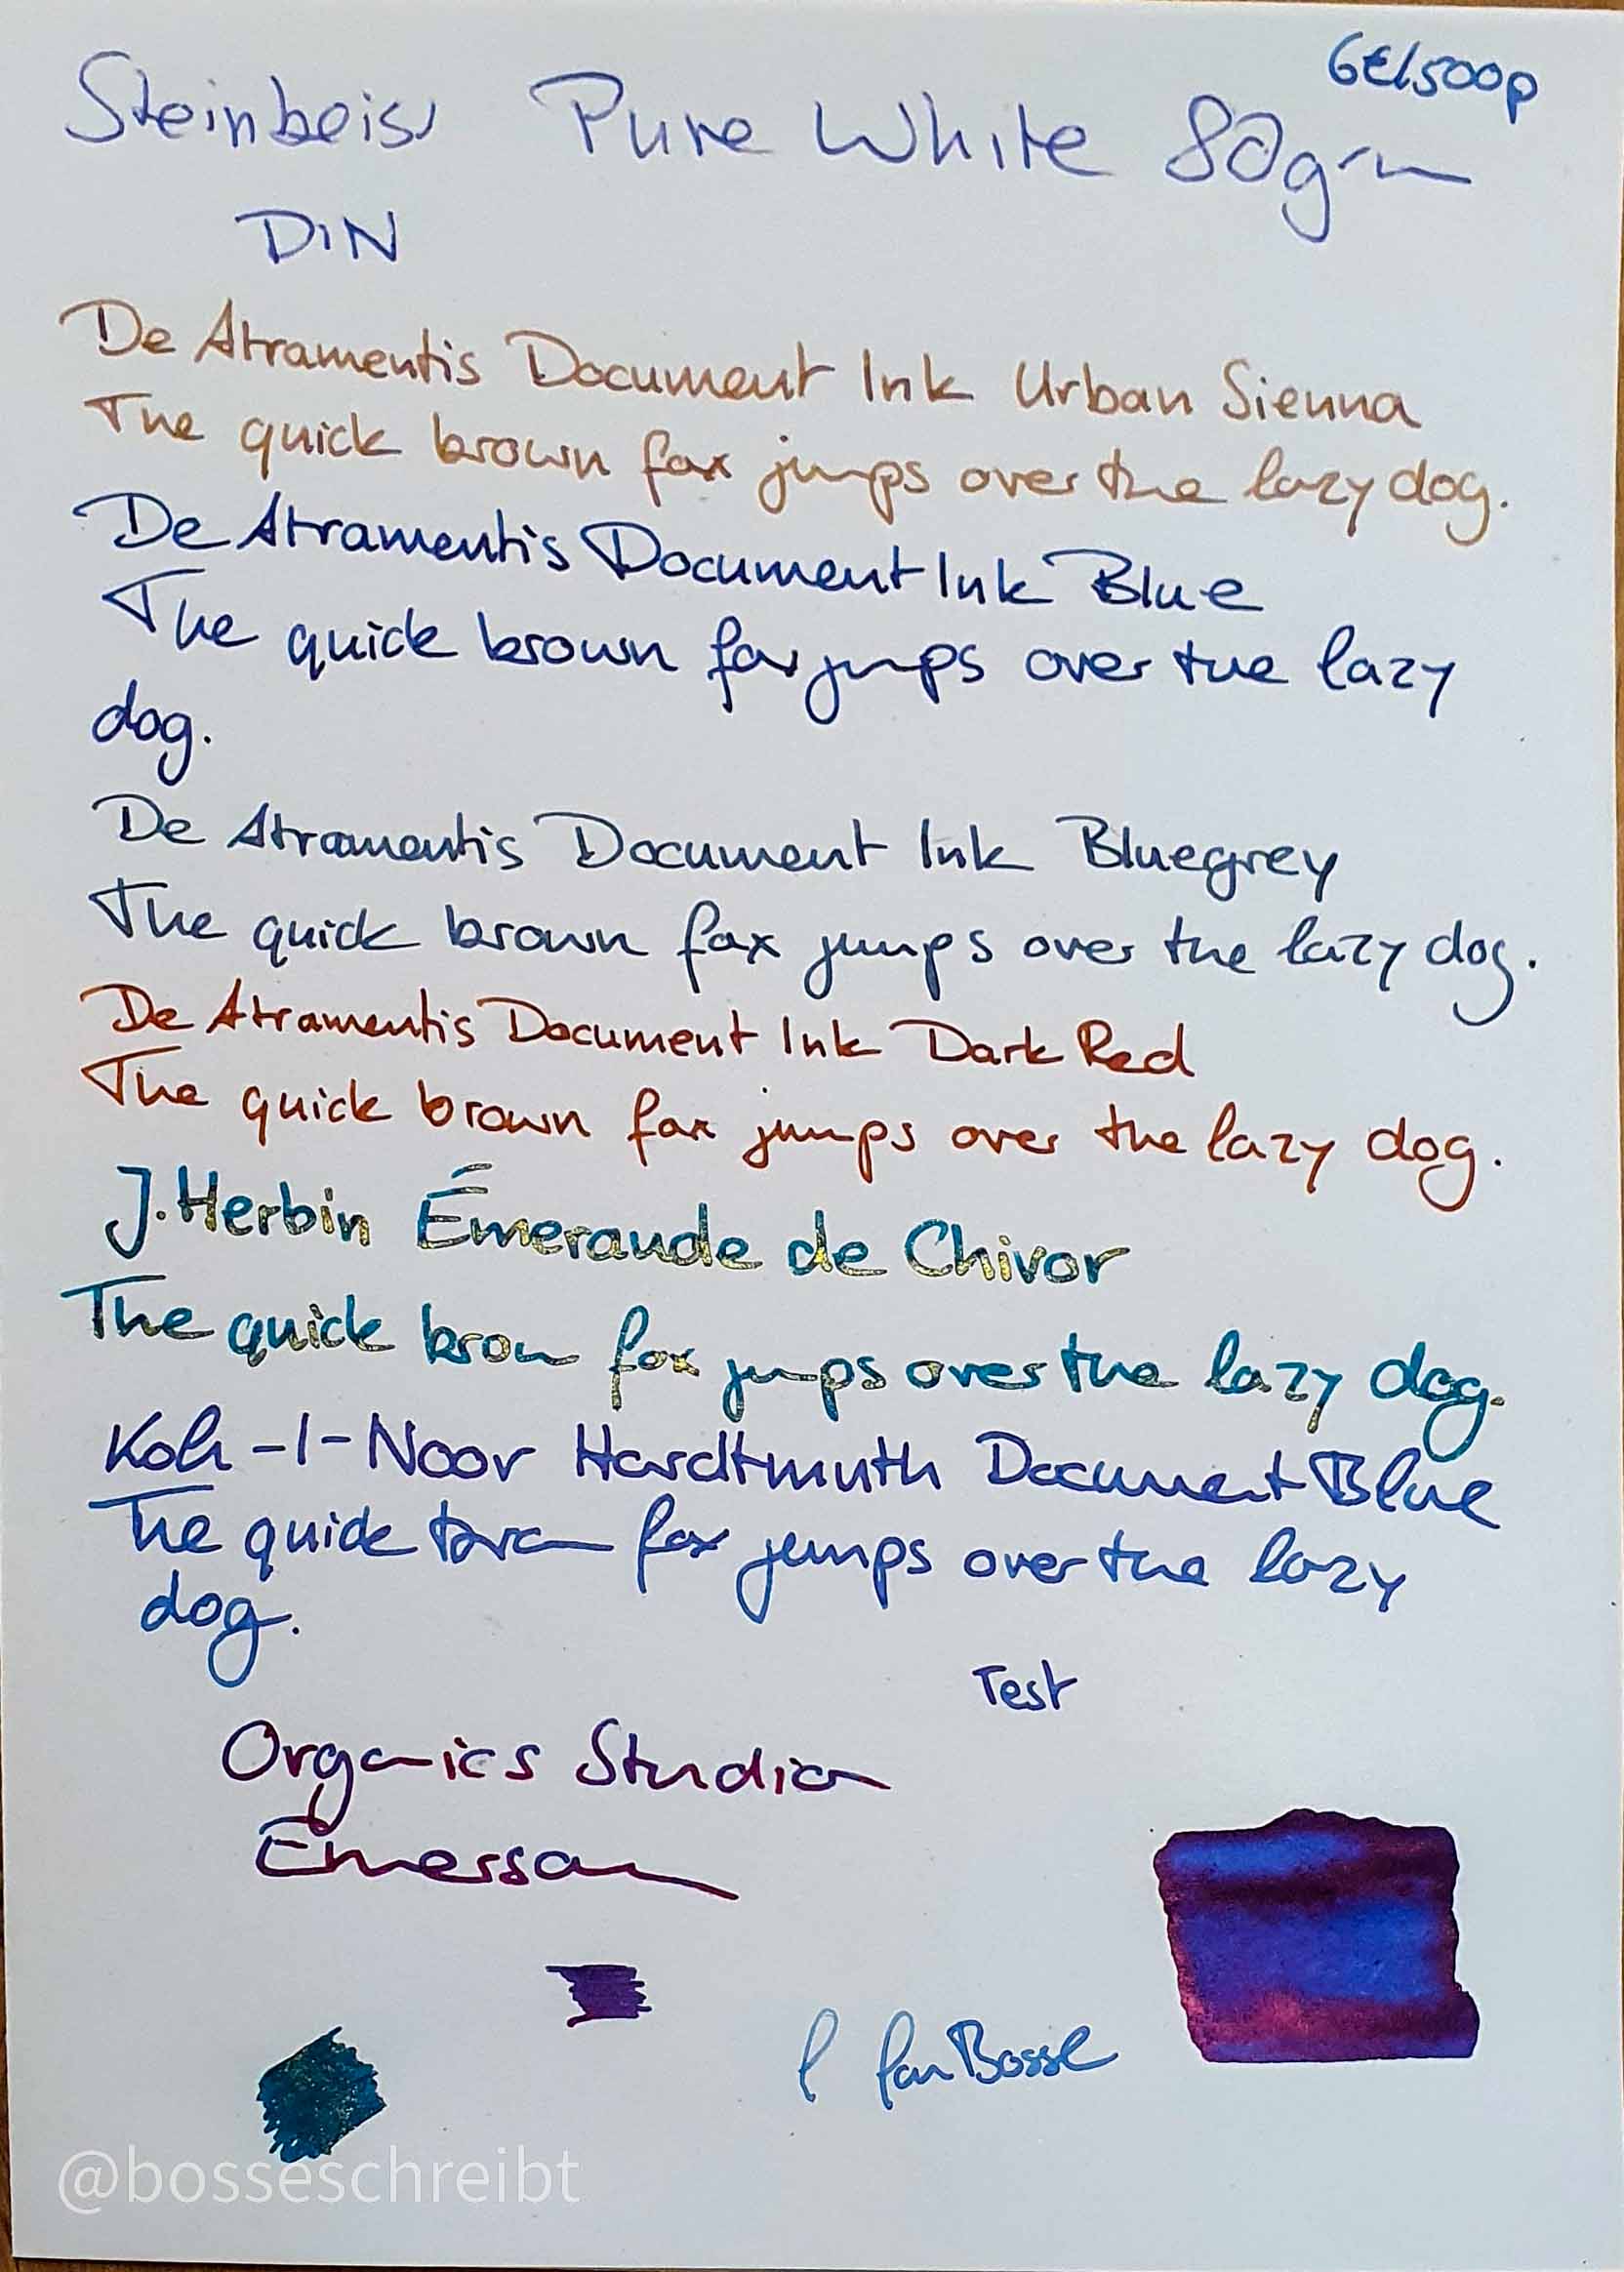 6€/500p
Steinbeiss Pure White 80gsm
DIN
De Atramentis Document Ink Urban Sienna
The quick brown fox jumps over the lazy dog.
De Atramentis Document Ink Blue
The quick brown fox jumps over the lazy
dog.
De Atramentis Document Ink Bluegrey
The quick brown fox jumps over the lazy dog.
De Atramentis Document Ink Dark Red
The quick brown fox jumps over the lazy dog.
J.Herbin Émeraude de Chivor
The quick brow fox jumps over the lazy dog.
Koh-I-Noor Hardtmuth Document Blue
The quick fox jumps over the lazy
dog.
Test
Organics Studio
Emerson
Bosse
@bosseschreibt